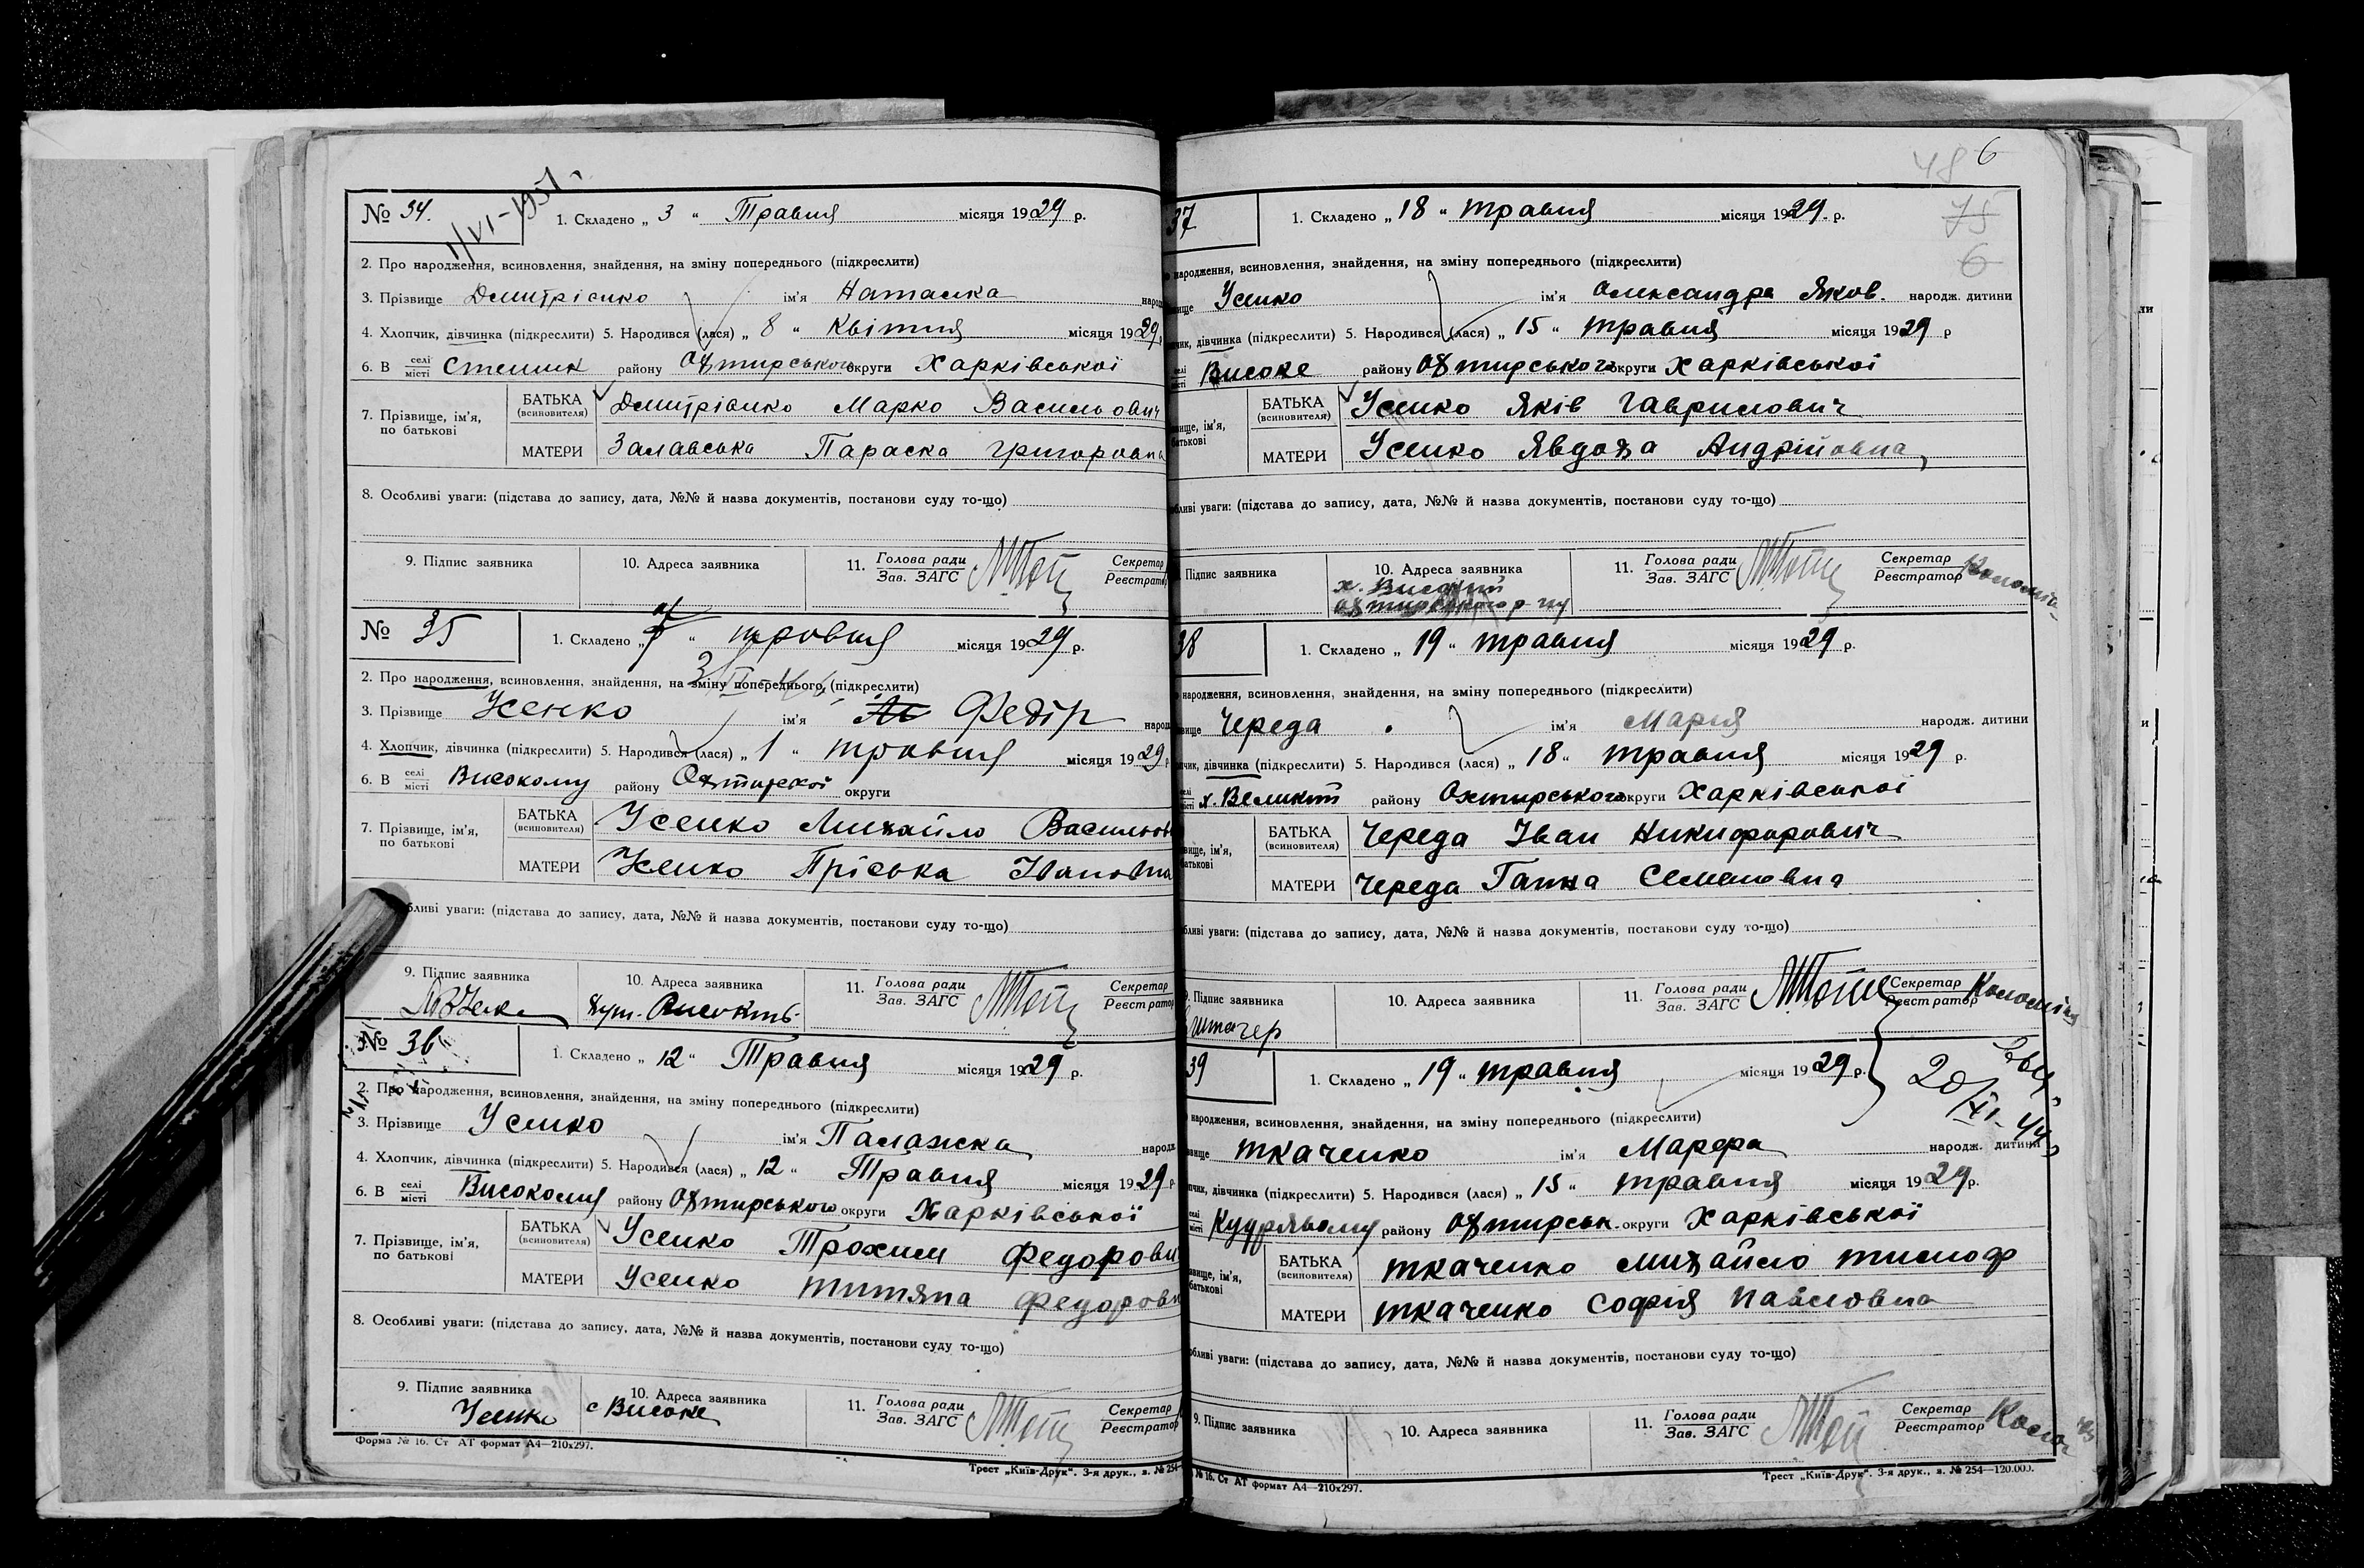 № 34.
1/VI-1951
1. Складено „ 3 “ Травня місяця 1929 р.
2. Про народження, всиновлення, знайдення, на зміну попереднього (підкреслити)
3. Прізвище Дмитрієнко ім'я Наталка народ
4. Хлопчик, дівчинка (підкреслити) 5. Народився (лася) „ 8 “ Квітня місяця 1929
6. В селі місті району Охтирського округи Харківської
7. Прізвище, ім'я, по батькові
БАТЬКА (всиновителя) Дмитрієнко Марко Васильович
МАТЕРИ Залавська Параска Григоровна
8. Особливі уваги: (підстава до запису, дата, №№ й назва документів, постанови суду то-що)
9. Підпис заявника 10. Адреса заявника 11. Голова ради Зав. ЗАГС Секретар Реєстратор
№ 35
1. Складено „ “ травня місяця 1929 р.
2. Про народження, всиновлення, знайдення, на зміну попереднього, (підкреслити)
3. Прізвище Усенко ім'я Федір народ
4. Хлопчик, дівчинка (підкреслити) 5. Народився (лася) „ 1 “ травня місяця 1929 р
6. В селі місті Високому району Охтирской округи
7. Прізвище, ім'я, по батькові
БАТЬКА (всиновителя) Усенко Михайло Васильов
МАТЕРИ Усенко Пріська Івановна
бливі уваги: (підстава до запису, дата, №№ й назва документів, постанови суду то-що)
9. Підпис заявника 10. Адреса заявника хут. Високий 11. Голова ради Зав. ЗАГС Секретар Реєстратор
№ 36
1. Складено „ 12 “ Травня місяця 1929 р.
2. Про народження, всиновлення, знайдення, на зміну попереднього (підкреслити)
3. Прізвище Усенко ім'я Палажка народ
4. Хлопчик, дівчинка (підкреслити) 5. Народився (лася) „ 12 “ Травня місяця 1929 р
6. В селі місті Високому району Охтирського округи Харківської
7. Прізвище, ім'я, по батькові
БАТЬКА (всиновителя) Усенко Трохим Федорови
МАТЕРИ Усенко Титяна Федоровн
8. Особливі уваги: (підстава до запису, дата, №№ й назва документів, постанови суду то-що)
9. Підпис заявника Усенко 10. Адреса заявника с Високе 11. Голова ради Зав. ЗАГС Секретар Реєстратор
Форма № 16. Ст АТ формат А4—210х297.
Трест „Київ-Друк“. 3-я друк., з. № 254
48 6
75
6
37
1. Складено „ 18 “ травня місяця 1929 р.
народження, всиновлення, знайдення, на зміну попереднього (підкреслити)
вище Усенко ім'я Олександра Яков. народж. дитини
чик, дівчинка (підкреслити) 5. Народився (лася) „ 15 “ травня місяця 1929 р
селі місті Високе району Охтирського округи Харківської
вище, ім'я, батькові
БАТЬКА (всиновителя) Усенко Яків Гаврилович
МАТЕРИ Усенко Явдоха Андрійовна
бливі уваги: (підстава до запису, дата, №№ й назва документів, постанови суду то-що)
Підпис заявника 10. Адреса заявника х. Високий Охтирського р-ну 11. Голова ради Зав. ЗАГС Секретар Реєстратор
38
1. Складено „ 19 “ травня місяця 1929 р.
народження, всиновлення, знайдення, на зміну попереднього (підкреслити)
вище Череда ім'я Марія народж. дитини
чик, дівчинка (підкреслити) 5. Народився (лася) „ 18 “ травня місяця 1929 р.
селі місті х. Великий району Охтирського округи Харківської
вище, ім'я, батькові
БАТЬКА (всиновителя) Череда Іван Никифорович
МАТЕРИ Череда Ганна Семеновна
бливі уваги: (підстава до запису, дата, №№ й назва документів, постанови суду то-що)
9. Підпис заявника 10. Адреса заявника 11. Голова ради Зав. ЗАГС Секретар Реєстратор
39
1. Складено „ 19 “ травня місяця 1929 р.
20/XI-44
народження, всиновлення, знайдення, на зміну попереднього (підкреслити)
вище Ткаченко ім'я Марфа народж. дитини
чик, дівчинка (підкреслити) 5. Народився (лася) „ 15 “ травня місяця 1929 р.
селі місті Кудрявому району Охтирськ. округи Харківської
вище, ім'я, батькові
БАТЬКА (всиновителя) Ткаченко Михайло Тимоф
МАТЕРИ Ткаченко Софія Павловна
бливі уваги: (підстава до запису, дата, №№ й назва документів, постанови суду то-що)
9. Підпис заявника 10. Адреса заявника 11. Голова ради Зав. ЗАГС Секретар Реєстратор
№ 16. Ст АТ формат А4—210х297.
Трест „Київ-Друк“. 3-я друк., з. № 254—120.000.